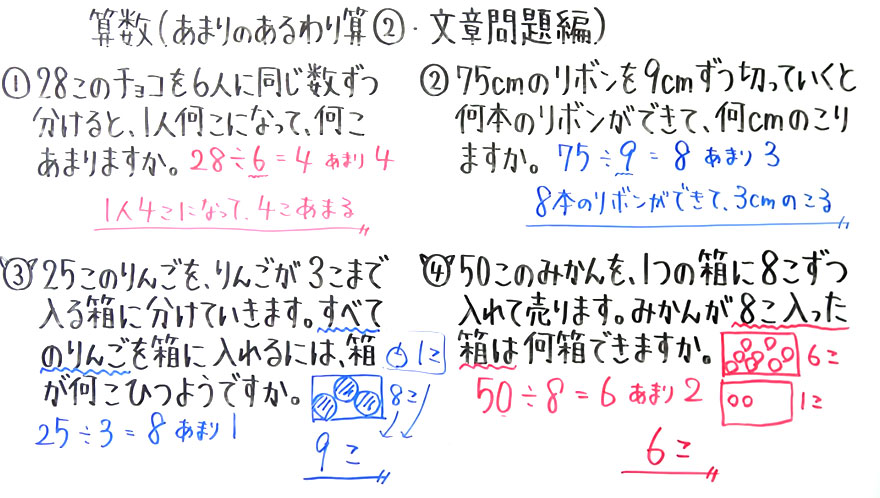 算数(あまりのあるわり算②・文章問題編)
①28このチョコを6人に同じ数ずつ
分けると、1人何こになって、何こ
あまりますか。28÷6=4 あまり 4
1人4こになって、4こあまる
②75cmのリボンを9cmずつ切っていくと
何本のリボンができて、何cmのこり
ますか。75÷9=8 あまり 3
8本のリボンができて、3cmのこる
③25このりんごを、りんごが3こまで
入る箱に分けていきます。すべて
のりんごを箱に入れるには、箱
が何こひつようですか。
1こ
8こ
25÷3=8 あまり 1
9こ
④50このみかんを、1つの箱に8こずつ
入れて売ります。みかんが8こ入った
箱は何箱できますか。
6こ
50÷8=6 あまり 2
1こ
6こ